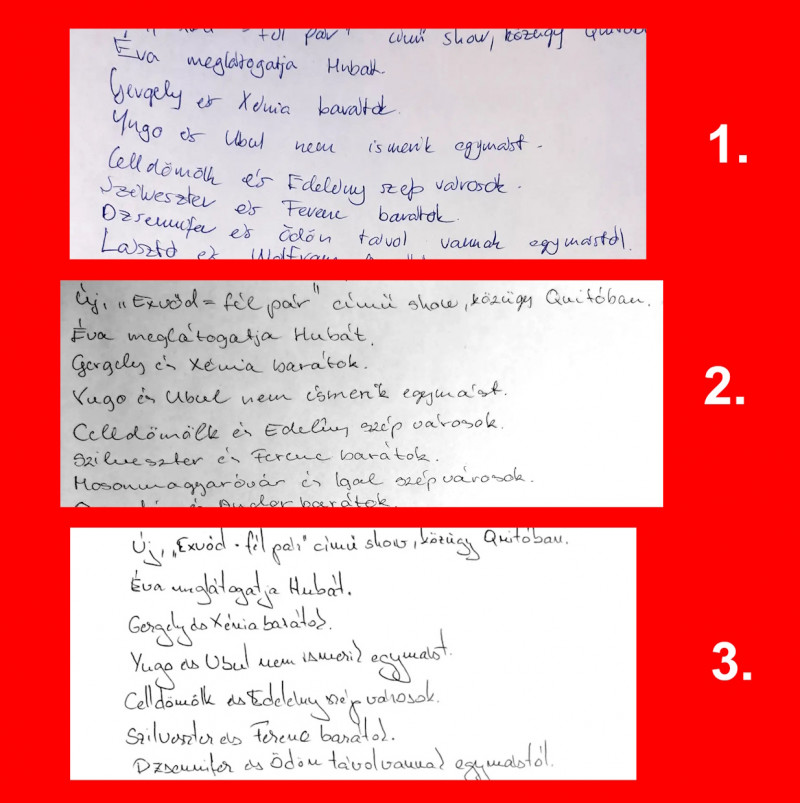 fél pár" című show, közügy Quitóban
Éva meglátogatja Hubát.
Gergely és Xénia barátok.
Yugo és Ubul nem ismerik egymást.
Celldömölk és Edelény szép városok.
Szilveszter és Ferenc barátok.
Dzsennifer és Ödön távol vannak egymástól.
László és Wolfram
1.
Új, "Exvöd = fél pár" című show, közügy Quitóban.
Éva meglátogatja Hubát.
Gergely és Xénia barátok.
Yugo és Ubul nem ismerik egymást.
Celldömölk és Edelény szép városok.
Szilveszter és Ferenc barátok.
Mosonmagyaróvár és Igal szép városok.
Andor barátok.
2.
Új, "Exvöd - fél pár" című show, közügy Quitóban.
Éva meglátogatja Hubát.
Gergely és Xénia barátok.
Yugo és Ubul nem ismerik egymást.
Celldömölk és Edelény szép városok.
Szilveszter és Ferenc barátok.
Dzsennifer és Ödön távol vannak egymástól.
3.